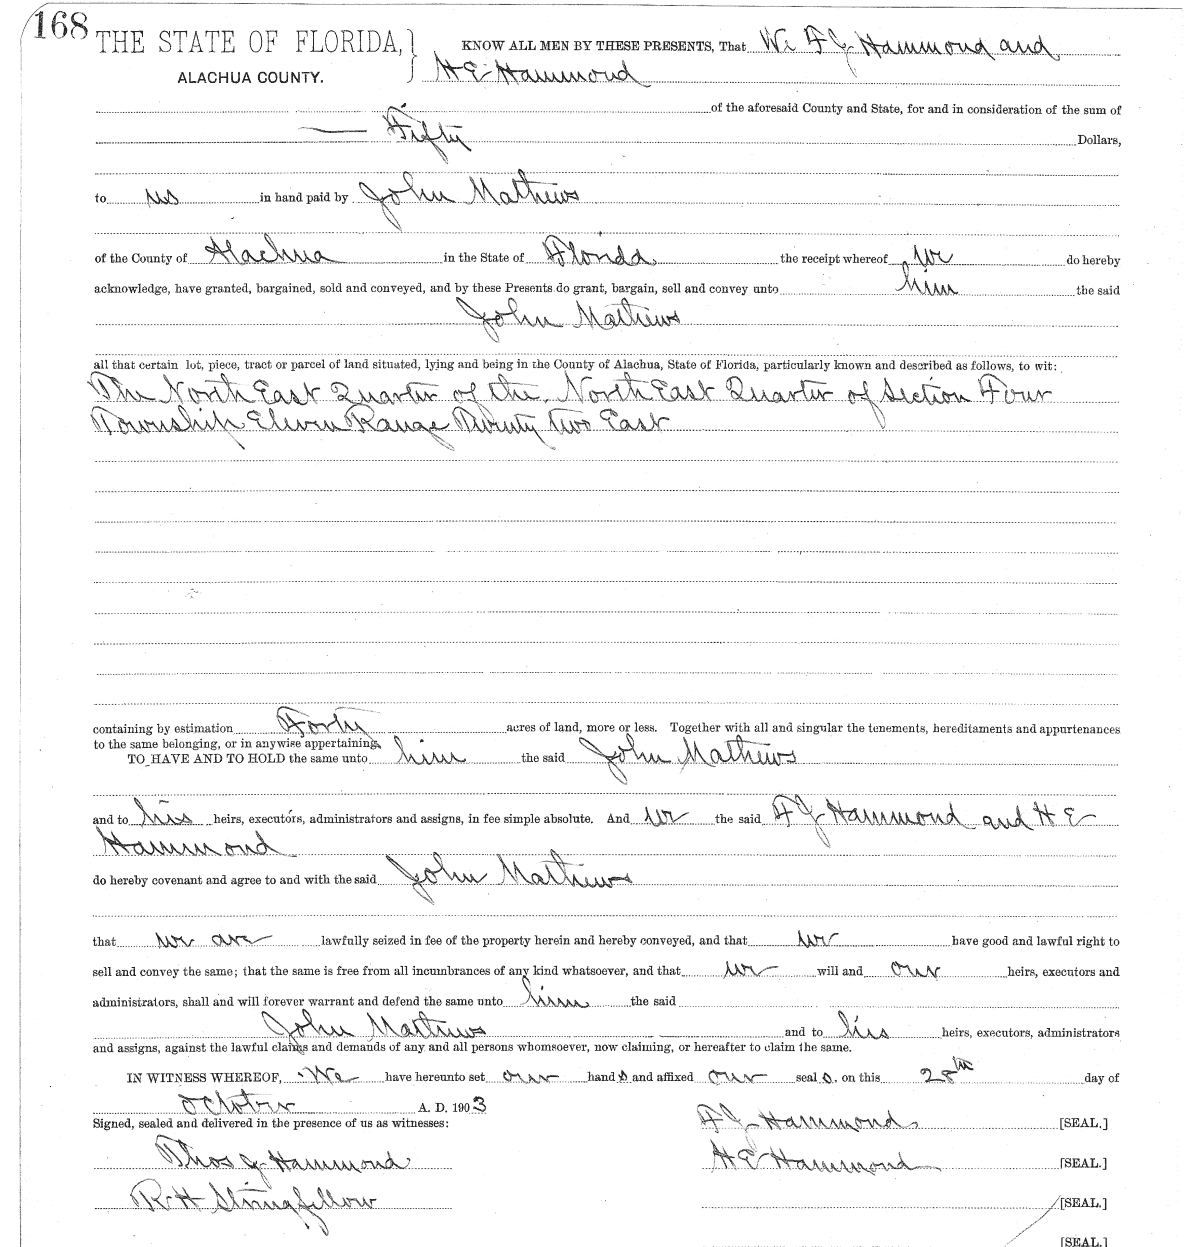 168
THE STATE OF FLORIDA, } KNOW ALL MEN BY THESE PRESENTS, That We F J Hammond and
ALACHUA COUNTY. H E Hammond
of the aforesaid County and State, for and in consideration of the sum of
Fifty Dollars,
to us in hand paid by John Mathews
of the County of Alachua in the State of Florida the receipt whereof we do hereby
acknowledge, have granted, bargained, sold and conveyed, and by these Presents do grant, bargain, sell and convey unto him the said
John Mathews
all that certain lot, piece, tract or parcel of land situated, lying and being in the County of Alachua, State of Florida, particularly known and described as follows, to wit:
The North East Quarter of the North East Quarter of Section Four
Township Eleven Range Twenty two East
containing by estimation Forty acres of land, more or less. Together with all and singular the tenements, hereditaments and appurtenances
to the same belonging, or in anywise appertaining.
TO HAVE AND TO HOLD the same unto him the said John Mathews
and to his heirs, executors, administrators and assigns, in fee simple absolute. And we the said F J Hammond and H E
Hammond
do hereby covenant and agree to and with the said John Mathews
that we are lawfully seized in fee of the property herein and hereby conveyed, and that we have good and lawful right to
sell and convey the same; that the same is free from all incumbrances of any kind whatsoever, and that we will and our heirs, executors and
administrators, shall and will forever warrant and defend the same unto him the said
John Mathews and to his heirs, executors, administrators
and assigns, against the lawful claims and demands of any and all persons whomsoever, now claiming, or hereafter to claim the same.
IN WITNESS WHEREOF, We have hereunto set our hand s and affixed our seal s. on this 28th day of
October A. D. 1903
Signed, sealed and delivered in the presence of us as witnesses: F J Hammond [SEAL.]
Thos J Hammond H E Hammond [SEAL.]
R H Stringfellow [SEAL.]
[SEAL.]